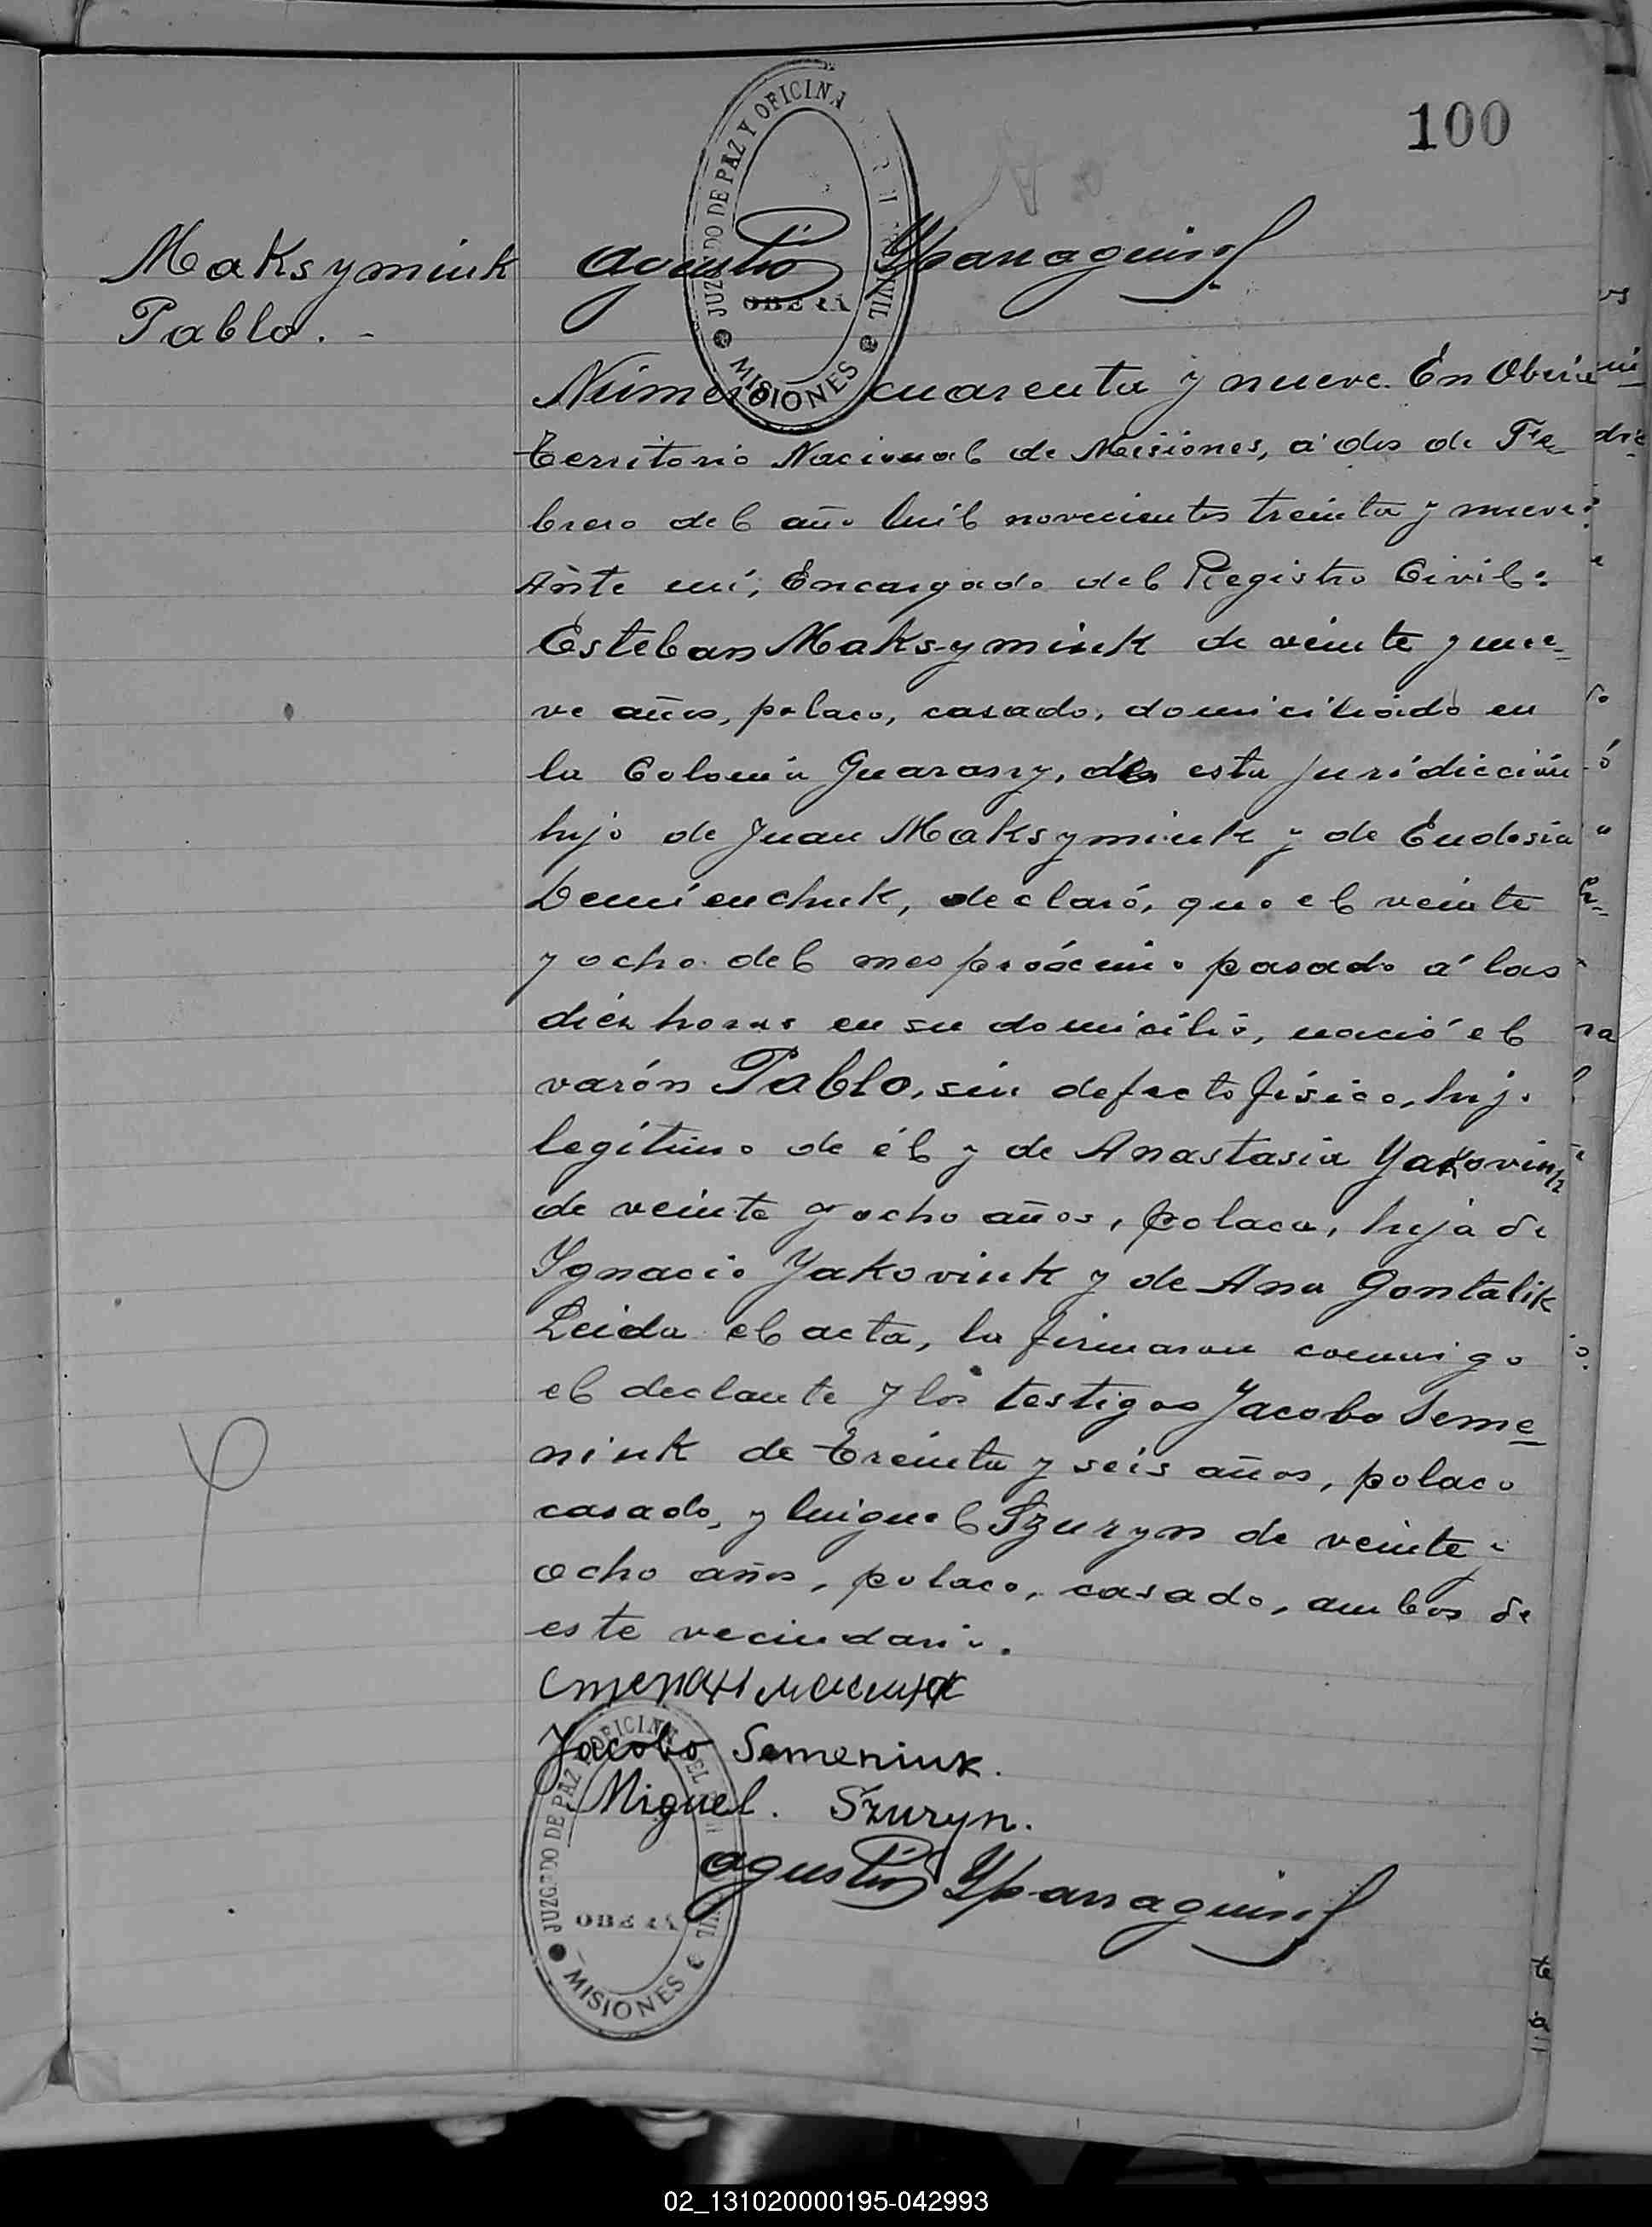 100
JUZGADO DE PAZ Y OFICINA
CIVIL
OBERÁ
MISIONES
Maksymiuk
Pablo. -
Agustin Yparraguirre
Número cuarenta y nueve. En Oberá
Territorio Nacional de Misiones, á dos de Fe-
brero del año mil novecientos treinta y nueve:
Ante mí, Encargado del Registro Civil:
Esteban Maksymiuk de veinte y nue-
ve años, polaco, casado, domiciliado en
la Colonia Guarany, de esta jurisdicción
hijo de Juan Maksymiuk y de Eudosia
Demienchuk, declaró, que el veinte
y ocho del mes próximo pasado á las
diéz horas en su domicilio, nació el
varón Pablo, sin defecto físico, hijo
legítimo de él y de Anastasia Yakoviuk
de veinte y ocho años, polaca, hija de
Ygnacio Yakoviuk y de Ana Gontalik
Leida el acta, la firmaron conmigo
el declante y los testigos Jacobo Seme-
niuk de treinta y seis años, polaco
casado, y Miguel Szuryn de veinte y
ocho años, polaco, casado, ambos de
este vecindario.
Jacobo Semeniuk.
Miguel. Szuryn.
Agustin Yparraguirre
JUZGADO DE PAZ Y OFICINA DEL
CIVIL
OBERÁ
MISIONES
02_131020000195-042993